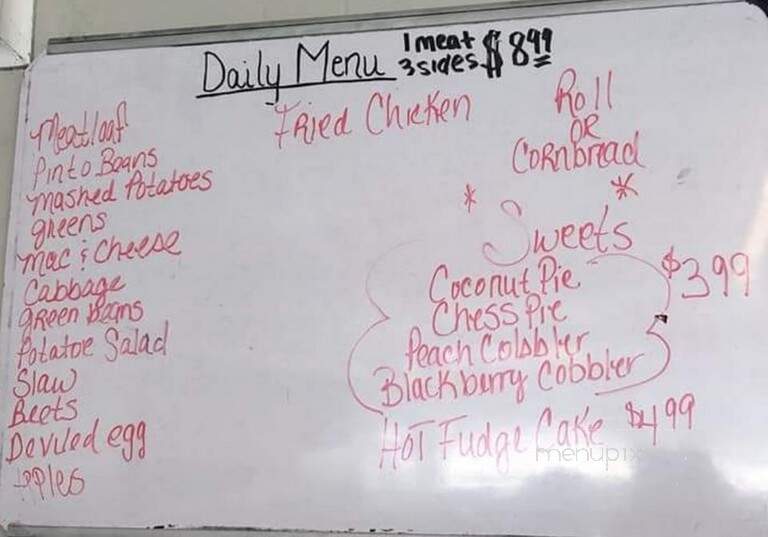 Daily Menu
1 meat
3 sides $8.99
Meatloaf
Pinto Beans
Mashed Potatoes
greens
Mac & Cheese
Cabbage
green Beans
Potatoe Salad
Slaw
Beets
Deviled egg
Apples
Fried Chicken
Roll
OR
Cornbread
* *
Sweets
Coconut Pie
Chess Pie
Peach Cobbler
Blackberry Cobbler
$3.99
Hot Fudge Cake $4.99
menupix